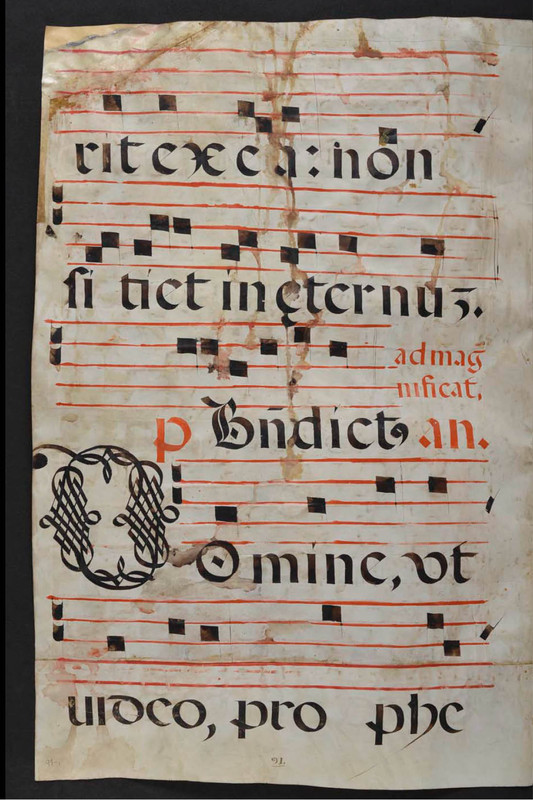 rit ex e a: non
si tiet in ęternuʒ.
ad mag̃
nificat,
p Bn̄dictꝯ an.
DOmine, vt
uideo, pro phe